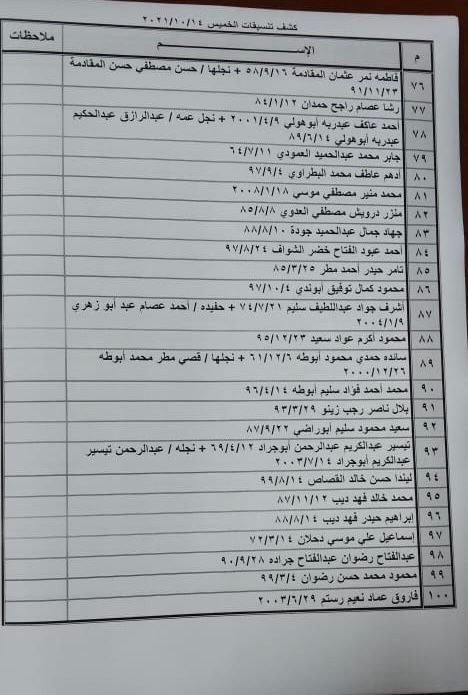 كشف تنسيقات الخميس ٢٠٢١/١٠/١٤
م الإســـــم ملاحظات
٧٦ فاطمه نمر عثمان المقادمة ٥٨/٩/١٦ + نجلها / حسن مصطفي حسن المقادمة
٩١/١١/٢٣
٧٧ رشا عصام راجح حمدان ٨٤/١/١٢
٧٨ أحمد عاكف عبدربه أبوهولي ٢٠٠١/٤/٩ + نجل عمه / عبدالرازق عبدالحكيم
عبدربه أبوهولي ٨٩/٦/١٤
٧٩ جابر محمد عبدالحميد العمودي ٦٤/٧/١١
٨٠ أدهم عاطف محمد البطراوي ٩٧/٩/٤
٨١ محمد منير مصطفي موسي ٢٠٠٨/١/١٨
٨٢ منزر درويش مصطفي العدوي ٨٥/٨/٨
٨٣ جهاد جمال عبدالحميد جودة ٨٨/٨/١٠
٨٤ أحمد عبود الفتاح خضر الشواف ٩٧/٨/٢٤
٨٥ تامر حيدر أحمد مطر ٨٥/٣/٢٥
٨٦ محمود كمال توفيق أبوندي ٩٧/١٠/٤
٨٧ أشرف جواد عبداللطيف سليم ٧٤/٧/٢١ + حفيده / أحمد عصام عبد أبو زهري
٢٠٠٤/١/٩
٨٨ محمود أكرم عواد سعيد ٩٥/١٢/٢٣
٨٩ سائده حمدي محمود أبوطه ٦١/١٢/٦ + نجلها / قصي مطر محمد أبوطه
٢٠٠٠/١٢/٢٦
٩٠ محمد أحمد فؤاد سليم أبوطه ٩٦/٤/١٤
٩١ بلال ناصر رجب زينو ٩٣/٣/٢٩
٩٢ سعيد محمود سليم أبوراضي ٨٧/٩/٢٢
٩٣ تيسير عبدالكريم عبدالرحمن أبوجراد ٦٩/٤/١٢ + نجله / عبدالرحمن تيسير
عبدالكريم أبوجراد ٢٠٠٣/٧/١٤
٩٤ ليندا حسن خالد القصاص ٩٩/٨/١٤
٩٥ محمد خالد فهد ديب ٨٧/١١/١٢
٩٦ إبراهيم حيدر فهد ديب ٨٨/٨/١٤
٩٧ إسماعيل علي موسي دحلان ٧٢/٣/١٤
٩٨ عبدالفتاح رضوان عبدالفتاح جراده ٩٠/٩/٢٨
٩٩ محمود محمد حسن رضوان ٩٩/٣/٤
١٠٠ فاروق عماد نعيم رستم ٢٠٠٣/٦/٢٩